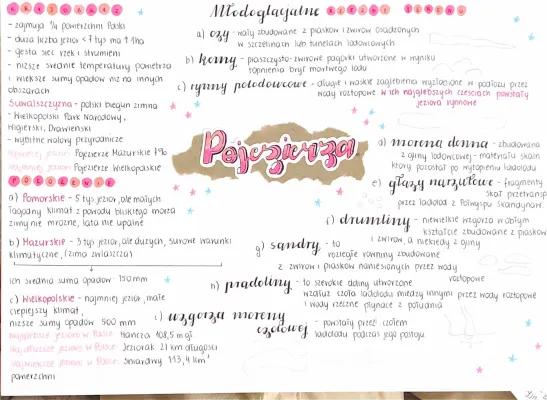 KRAJOBRAZ
- zajmują ¼ powierzchni Polski
- duża liczba jezior < 7 tys ma ↑ 1ha
- gęsta sieć rzek i strumieni
- niższe średnie temperatury powietrza
i większe sumy opadów niż na innych
obszarach
Suwalszczyzna - polski biegun zimna
- Wielkopolski Park Narodowy,
Wigierski, Drawieński
- wybitne walory przyrodnicze
Pojezierze Mazurskie
Pojezierze Wielkopolskie
POŁOŻENIE
a) Pomorskie - 5 tys jezior, ale małych
łagodny klimat z powodu bliskiego morza
zimy nie mroźne, lata nie upalne
b) Mazurskie - 3 tys jezior, ale dużych, surowe warunki
klimatyczne, (zima zwłaszcza)
ich średnia suma opadów - 150mm
c) Wielkopolskie - najmniej jezior, małe
cieplejszy klimat,
niższe sumy opadów 500 mm
najgłębsze jezioro w Polsce: Hańcza 108,5 m gł
najdłuższe jezioro w Polsce: Jeziorak 27 km długości
największe jezioro w Polsce: Śniardwy 113,4 km²
powierzchni
Pojezierza
Młodoglacjalne RZEŹBY TERENU
a) ozy - wały zbudowane z piasków i żwirów osadzonych
w szczelinach lub tunelach lodowcowych
b) kemy - piaszczysto-żwirowe pagórki utworzone w wyniku
topnienia brył martwego lodu
c) rynny polodowcowe - długie i wąskie zagłębienia wyżłobione w podłożu przez
wody roztopowe w ich najgłębszych częściach powstały
jeziora rynnowe
d) morena denna - zbudowana
z gliny lodowcowej - materiału skaln
który pozostał po wytopieniu lądolodu
e) głazy narzutowe - fragmenty
skał przetransp
przez lądolód z Półwyspu Skandynaw.
f) drumliny - niewielkie wzgórza w obłym
kształcie zbudowane z piasków
i żwirów, a niekiedy z gliny
g) sandry - to
rozległe równiny zbudowane
z żwirów i piasków naniesionych przez wody
roztopowe
h) pradoliny - to szerokie doliny utworzone
wzdłuż czoła lądolodu między innymi przez wody roztopowe
i wody rzeczne płynące z południa
i) wzgórza moreny
czołowej - powstały przed czołem
lądolodu podczas jego postoju